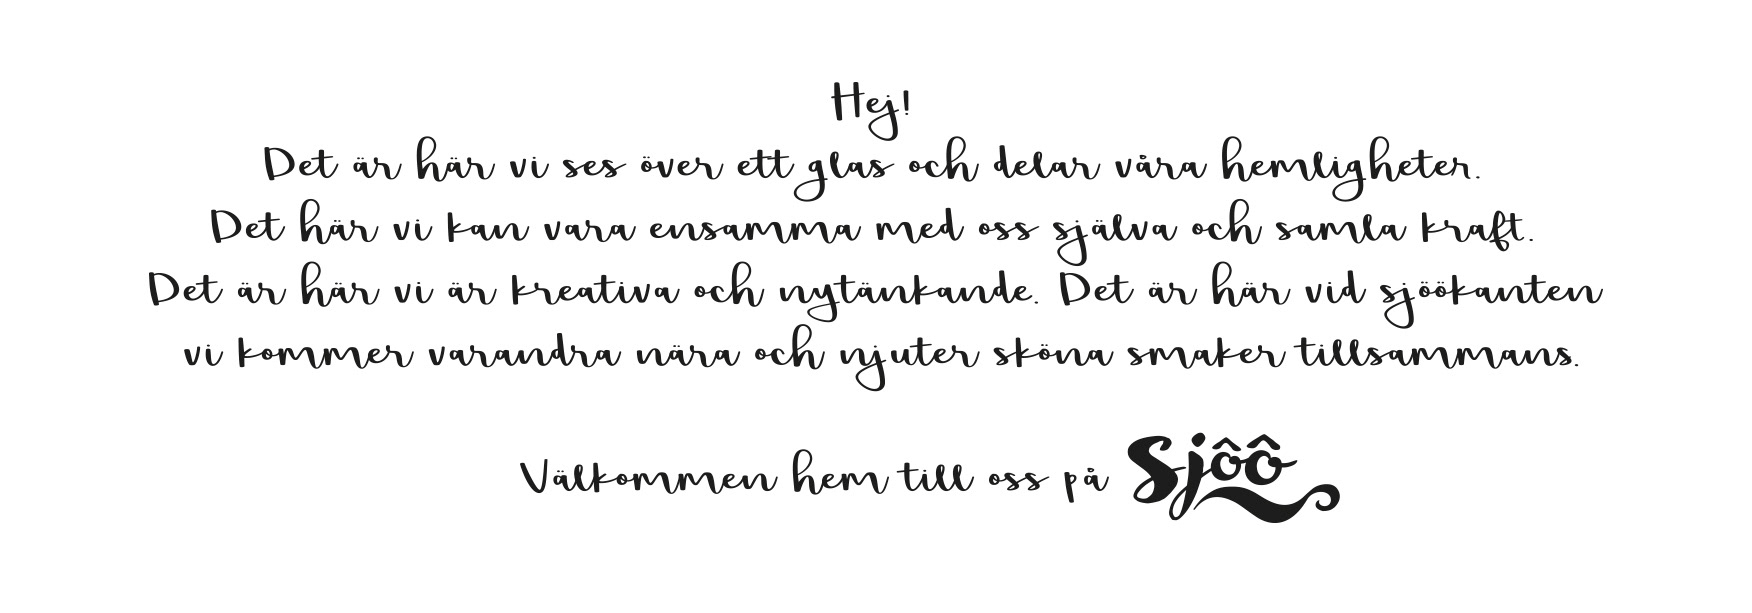 Hej!
Det är här vi ses över ett glas och delar våra hemligheter.
Det här vi kan vara ensamma med oss själva och samla kraft.
Det är här vi är kreativa och nytänkande. Det är här vid sjöökanten
vi kommer varandra nära och njuter sköna smaker tillsammans.
Välkommen hem till oss på Sjôô